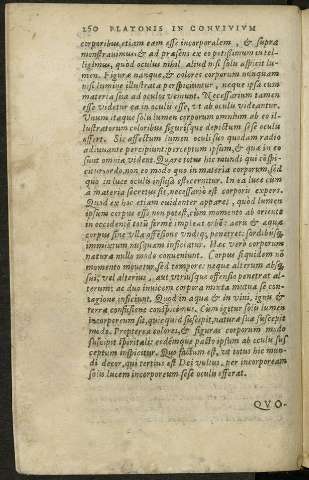 260 PLATONIS IN CONVIVIVM
corporibus, etiam eam esse incorporalem, & supra
monstrauimus: & ad præsens ex eo potissimum intel-
ligimus, quod oculus nihil aliud nisi solis aspicit lu-
men. Figuræ nanque, & colores corporum nunquam
nisi lumine illustrata perspiciuntur, neque ipsa cum
materia sua ad oculos veniunt. Necessarium tamen
esse videtur ea in oculis esse, vt ab oculis videantur.
Vnum itaque solis lumen corporum omnium ab eo il-
lustratorum coloribus figurisque depictum sese oculis
offert. Sic affectum lumen oculi suo quodam radio
adiuuante percipiunt: perceptum ipsum, & quæ in eo
sunt omnia vident. Quare totus hic mundi ordo, qui conspi-
citur, non eo modo quo in materia corporum, sed
quo in luce oculis infusa est cernitur. In ea luce cum
a materia secretus sit, necessario est corporis expers.
Quod ex hoc etiam euidenter apparet, quod lumen
ipsum corpus esse non potest, cum momento ab oriente
in occidentem totum ferme impleat orbem: aeris & aquæ
corpus sine vlla offensione vndique penetret: sordibusque
immixtum nusquam inficiatur. Hæc vero corporum
naturæ nullo modo conueniunt. Corpus siquidem non
momento mouetur, sed tempore: neque alterum absque
sui, vel alterius, aut vtriusque offensione penetrat al-
terum: ac duo inuicem corpora mixta mutua se con-
tagione inficiunt. Quod in aqua & in vini, ignis &
terræ confusione conspicimus. Cum igitur solis lumen
incorporeum sit, quicquid suscipit, naturæ suæ suscipit
modo. Propterea colores, & figuras corporum modo
suscipit spiritali: eodemque pacto ipsum ab oculis sus-
ceptum inspicitur. Quo factum est, vt totus hic mun-
di decor, qui tertius est Dei vultus, per incorpoream
solis lucem incorporeum sese oculis offerat.
QVO-